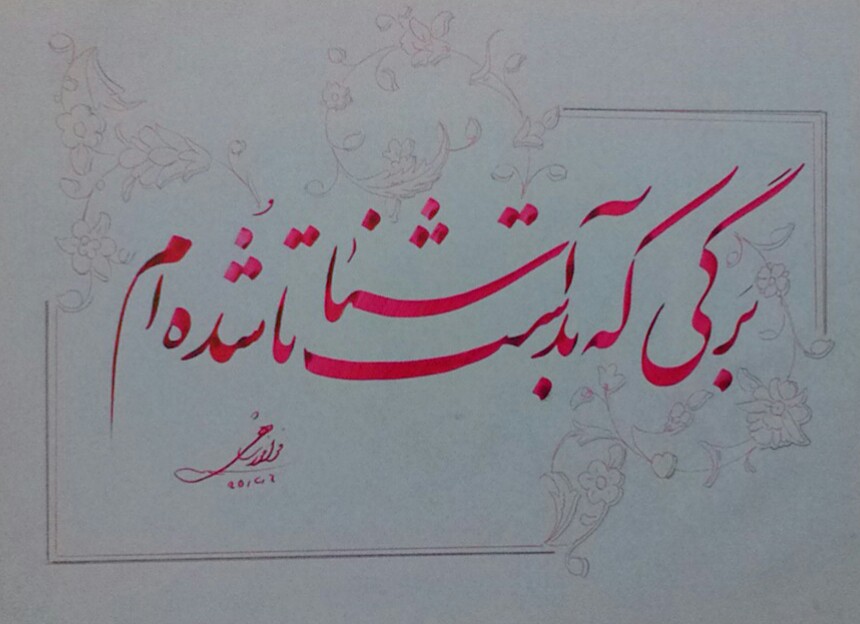 برگی که بدست آشنا تا شده‌ام